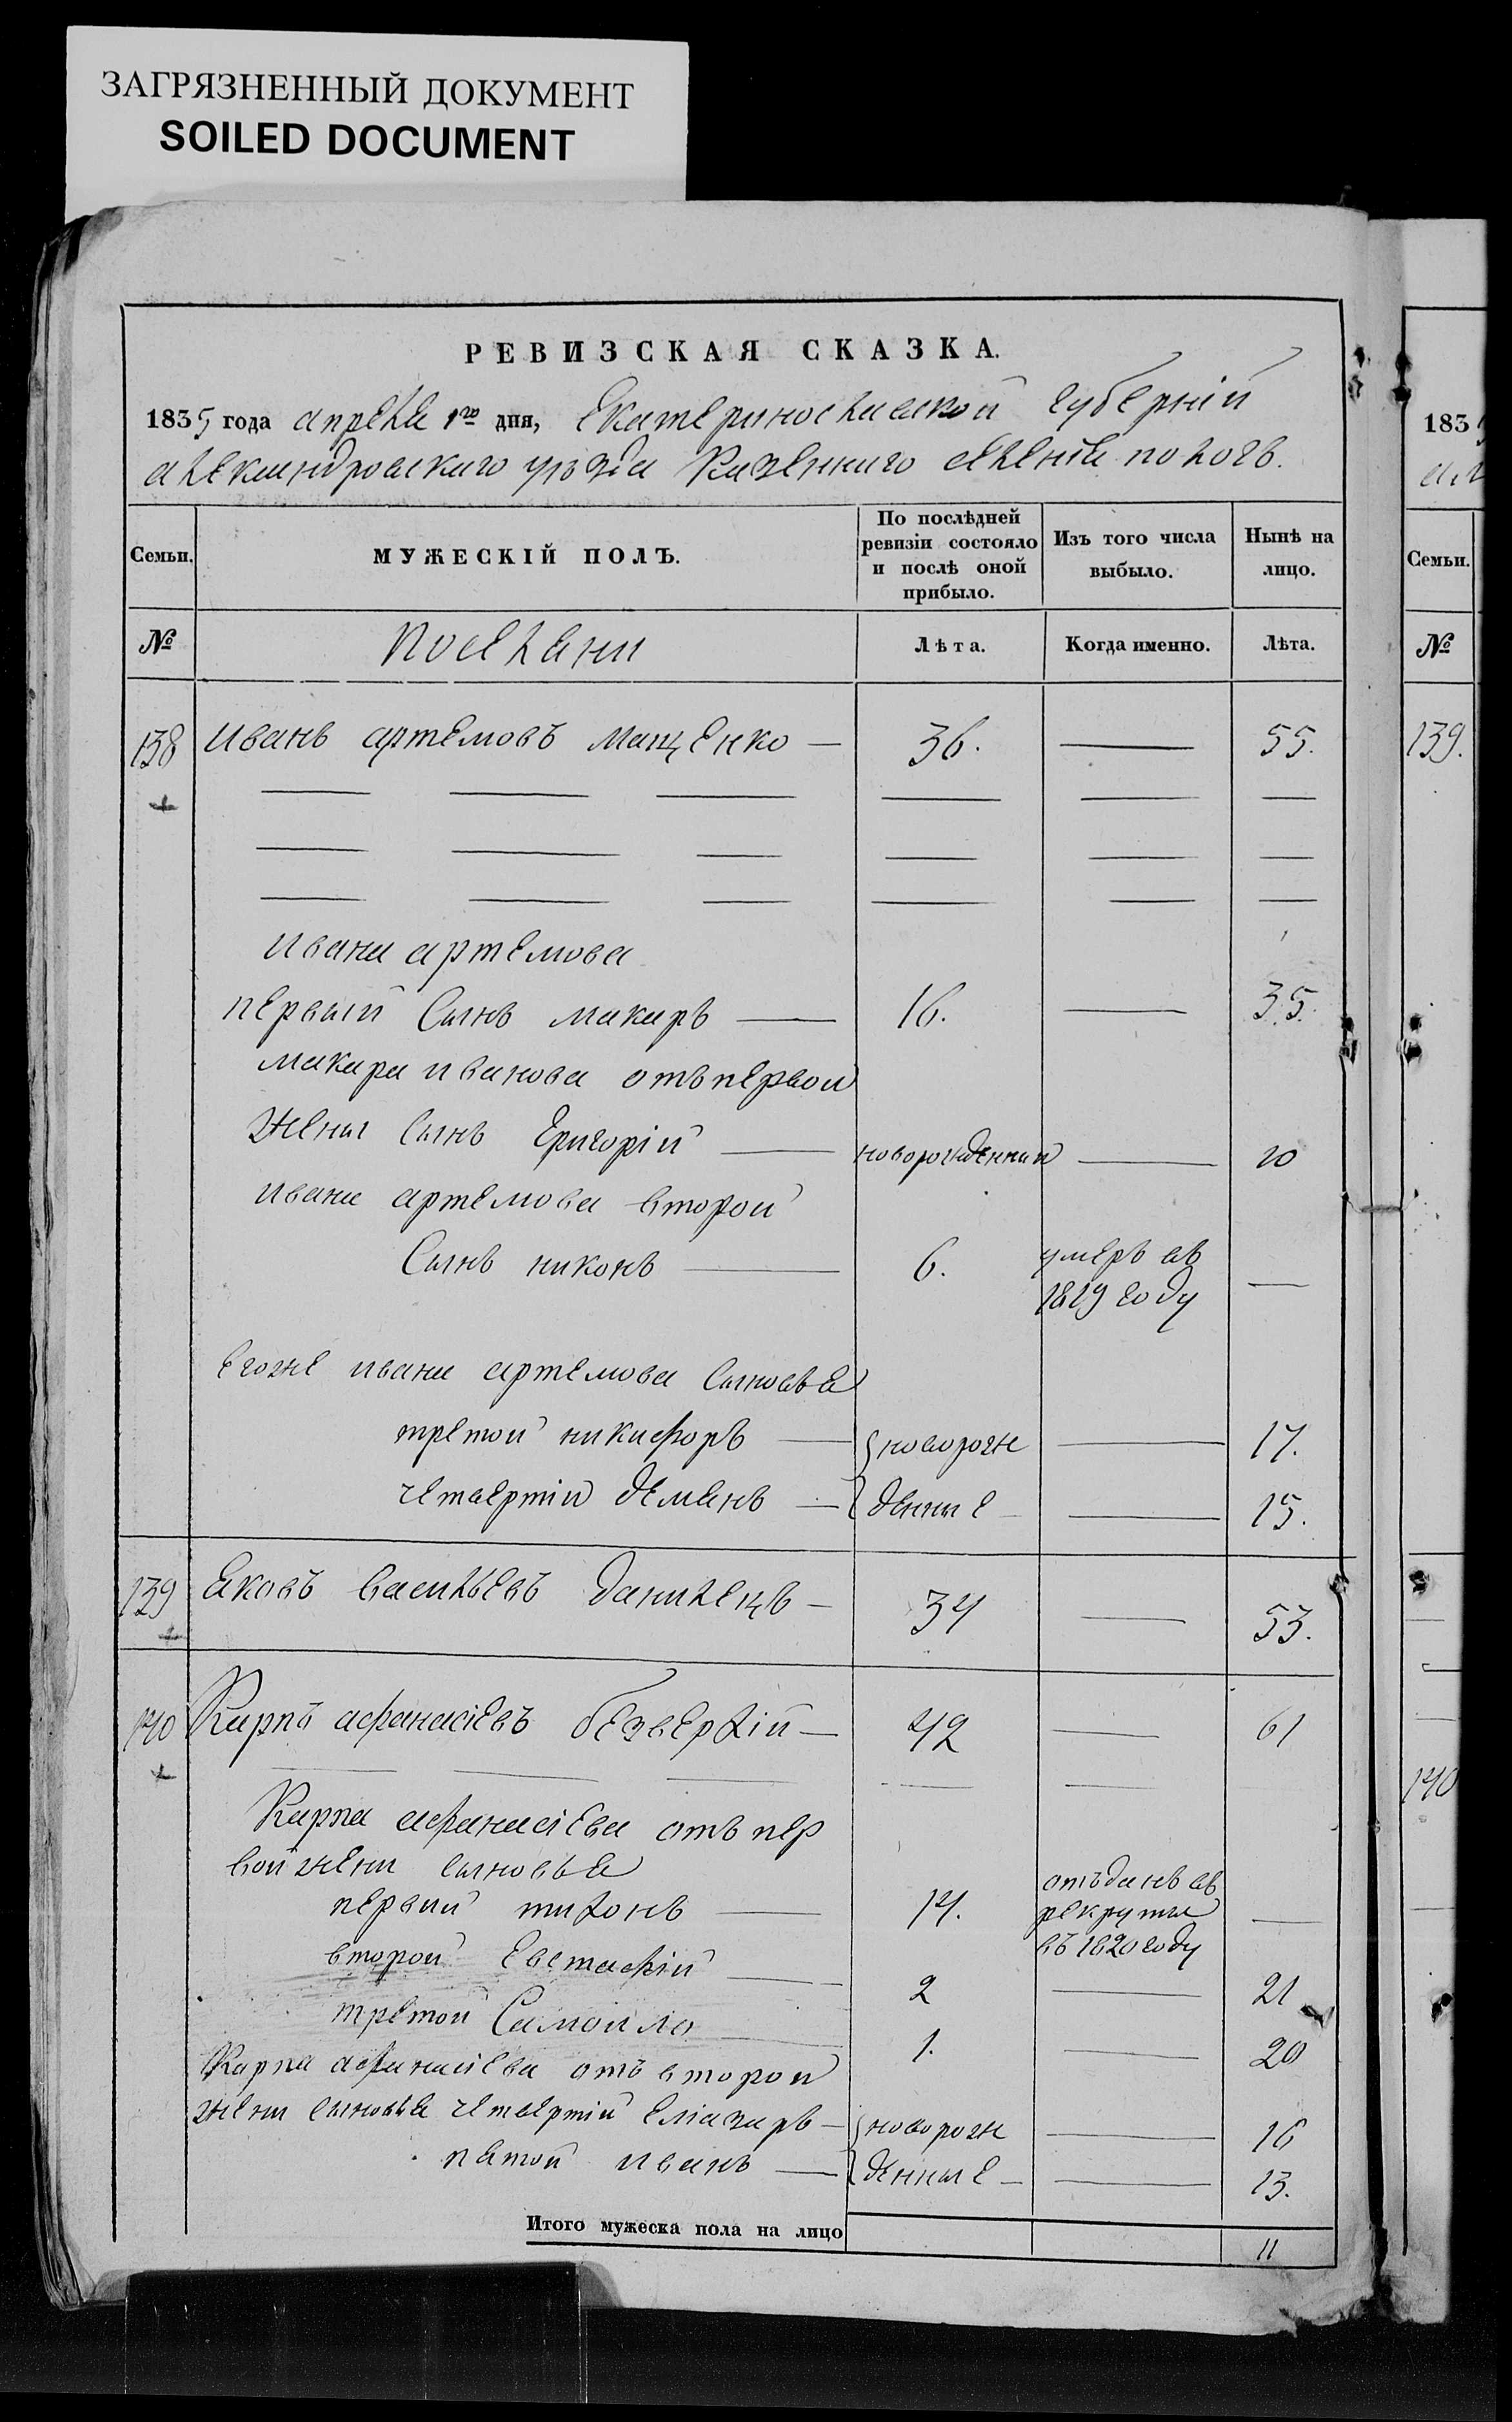 ЗАГРЯЗНЕННЫЙ ДОКУМЕНТ
SOILED DOCUMENT
РЕВИЗСКАЯ СКАЗКА.
1835 года апреля 1го дня, Екатеринославской губерніи
александровскаго уѣзда Казеннаго селенія пологъ.
Семьи. МУЖЕСКІЙ ПОЛЪ. По послѣдней ревизіи состояло и послѣ оной прибыло. Изъ того числа выбыло. Нынѣ на лицо.
№ Поселяни Лѣта. Когда именно. Лѣта.
138 иванъ артемовъ мащенко — 36. — 55.
ивана артемова
первый Сынъ макаръ — 16. — 35.
макара иванова отъ первой
жены Сынъ Григорій — новорожденный — 20
ивана артемова второй
Сынъ никонъ — 6. умеръ въ 1819 году —
Егоже ивана артемова Сыновья
третой никифоръ — новорож — 17.
четвертій демянъ — денные — 15.
139 яковъ васильевъ данилецъ — 34 — 53.
140 Карпъ афанасіевъ безверхій — 42 — 61
Карпа афанасіева отъ пер
вой жени сыновья
первий тихонъ — 14. отъданъ въ рекруты въ 1820 году —
второй Евстафій — 2 — 21
третой Самойло — 1. — 20
Карпа афанасіева отъ второй
жени сыновья четвертій еліазаръ — новорож — 16
пятой иванъ — денные — — 13.
Итого мужеска пола на лицо 11
183
Семьи.
№
139.
140